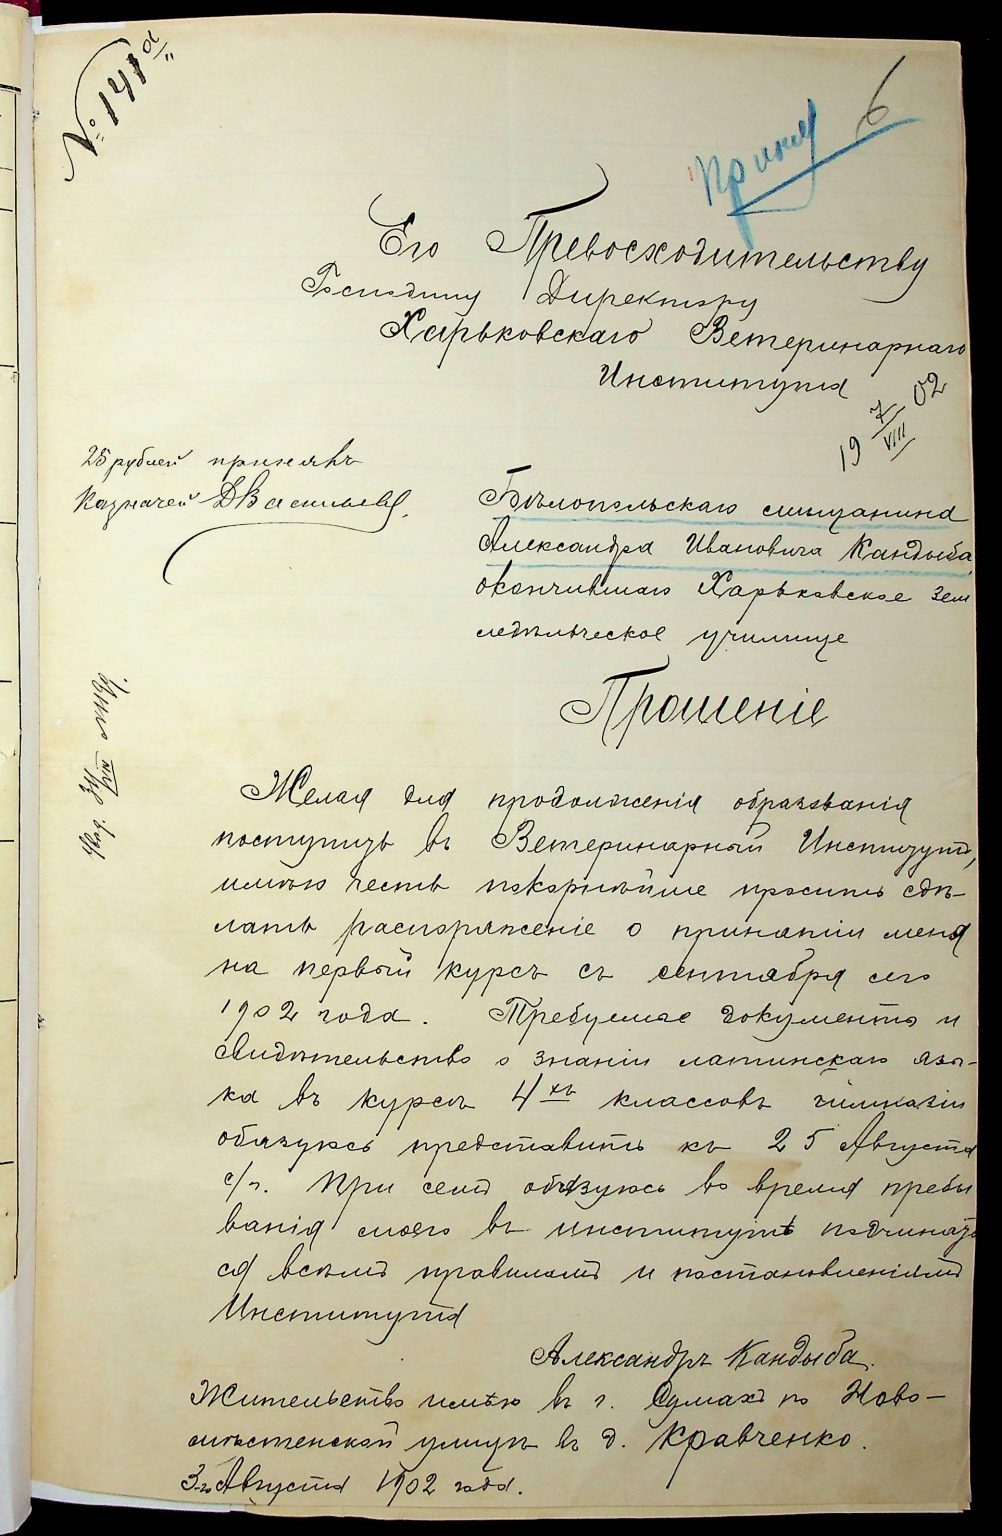 № 141а
6
Принят
Его Превосходительству
Господину Директору
Харьковскаго Ветеринарнаго
Института
19 7/VIII 02
25 рублей принялъ
Казначей ДВасильевъ.
Бѣлопольскаго мѣщанина
Александра Ивановича Кандыба,
окончившаго Харьковское зем
ледѣльческое училище
Прошеніе
Желая для продолженія образованія
поступить въ Ветеринарный Институтъ,
имѣю честь покорнѣйше просить сдѣ-
лать распоряженіе о принятіи меня
на первый курсъ съ сентября сего
1902 года. Требуемые документы и
свидѣтельство о знаніи латинскаго язы-
ка въ курсѣ 4хъ классовъ гимназіи
обязуюсь представить къ 25 Августа
с/г. При семъ обязуюсь во время пребы
ванія моего въ институтѣ подчинять
ся всѣмъ правиламъ и постановленіямъ
Института
Александръ Кандыба.
Жительство имѣю въ г. Сумахъ по Ново-
мѣстенской улицѣ въ д. Кравченко.
3-го Августа 1902 года.